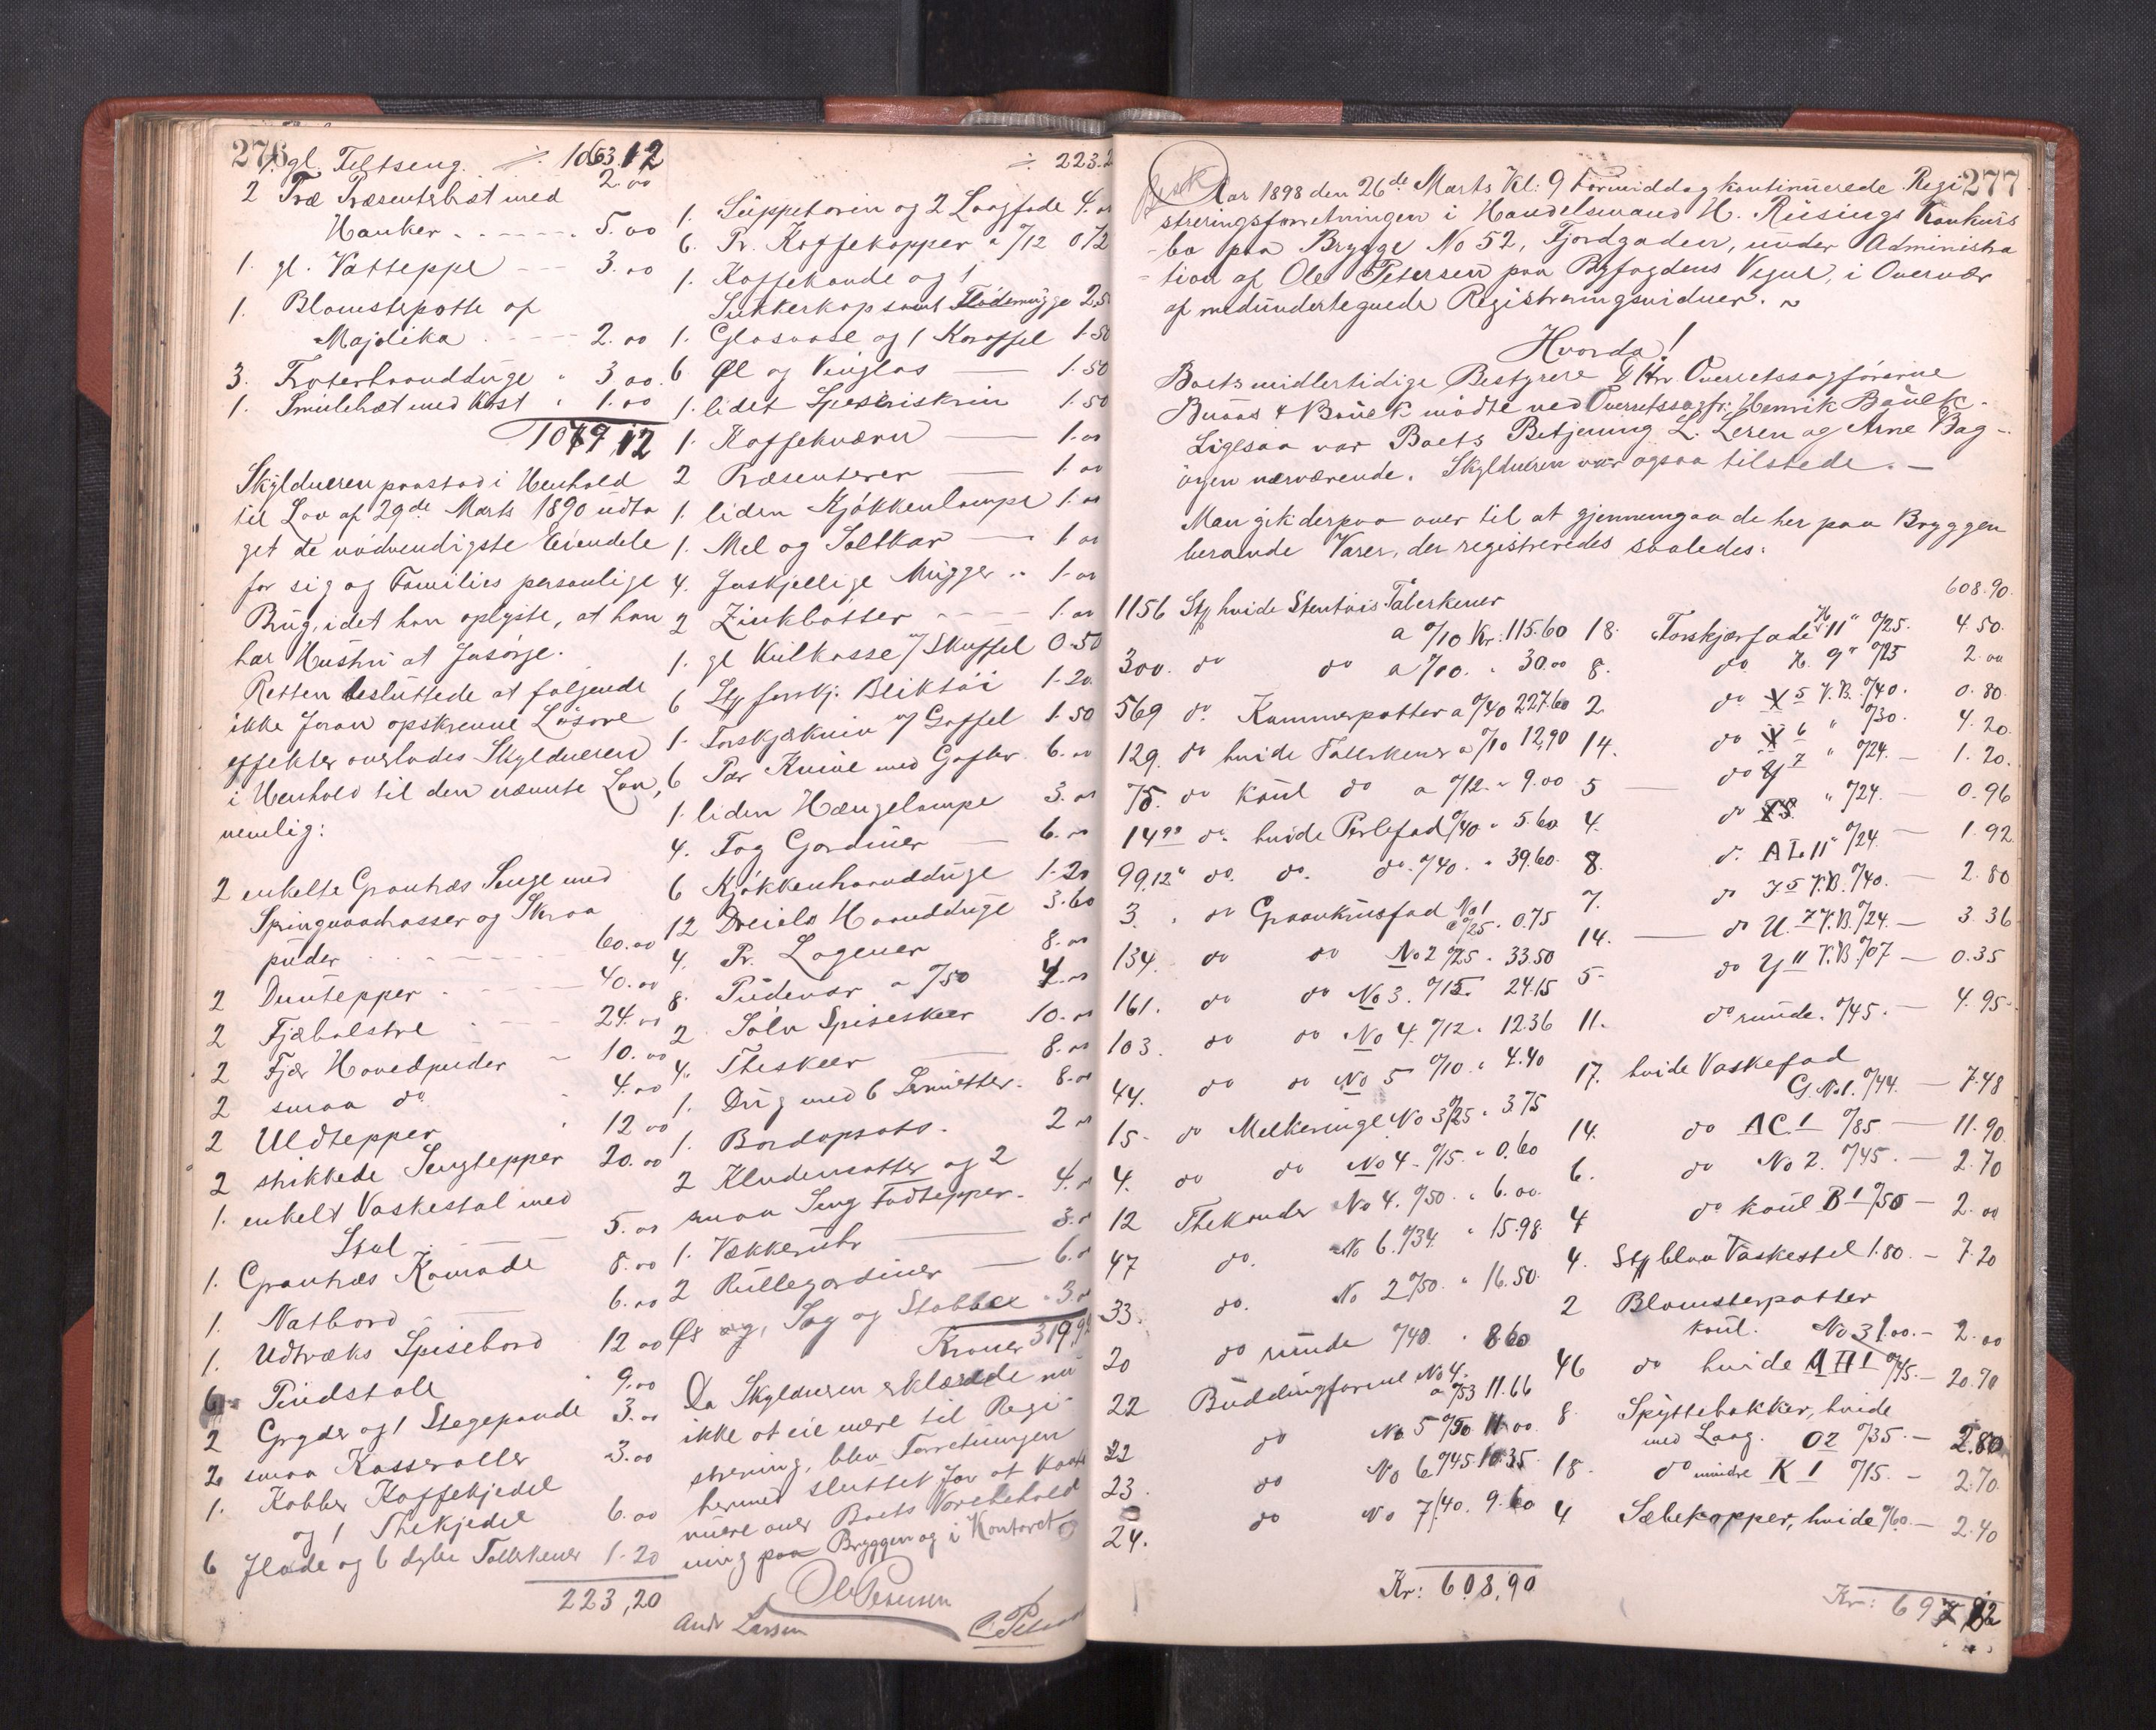 276
1. gl. Feltseng. ÷ 1063.12
2.00
2 Træ Præsenterbræt med
Hanker 5.00
1. gl. Vatteppe 3.00
1. Blomsterpotte af
Majolika 2.00
3. Froterhaandduge " 3.00
1. Smulebræt med Kost " 1.00
1079.12
Skyldneren paastod i Henhold
til Lov af 29de Marts 1890 udta
get de nödvendigste Eiendele
for sig og Families personlige
Brug, idet han oplyste, at han
har Hustru at forsörge.
Retten besluttede at fölgende
ikke foran opskrevne Lösöre
effekter overlodes Skyldneren
i Henhold til den nævnte Lov,
nemlig:
2 enkelte Grantræs Senge med
Springmadrasser og Skraa
puder 60.00
2 Duntepper 40.00
2 Fjærbolstre 24.00
2 Fjær Hovedpuder 10.00
2 smaa do 4.00
2 Uldtepper 12.00
2 strikkede Sengtepper 20.00
1. enkelt Vaskestol med
Stel 5.00
1. Grantræs Komode 8.00
1. Natbord 6.00
1. Udtræks Spisebord 12.00
6 Pindstole 9.00
2 Gryder og 1 Stegepande 3.00
2 smaa Kasseroller 3.00
1. Kobber Kaffekjedel
og 1 Thekjedel 6.00
6 flade og 6 dybe Tallerkener 1.20
223,20
÷ 223.2
1. Suppeterin og 2 Laagfade 4.00
6. Pr. Kaffekopper a 0/12 0.72
1. Kaffekande og 1
Sukkerkop samt Flödemugge 2.50
1. Glasvase og 1 Karaffel 1.50
6 Øl og Vinglas 1.50
1. lidet Speseriskrin 1.50
1. Kaffekværn 1.00
2 Præsenterer 1.00
1. liden Kjökkenlampe 1.00
1. Mel og Saltkar 1.00
4. forskjellige Mugger 1.00
2 Zinkbötter 1.00
1. gl Kulkasse m/ Skuffel 0.50
6 Stp forskj. Bliktöi 1.20
1. Forskjærkniv m/ Gaffel 1.50
6 Par Knive med Gafler 6.00
1. liden Hængelampe 3.00
4. Fag Gardiner 6.00
6 Kjökkenhaandduge 1.20
12 Dreiels Haandduge 3.60
4. Pr. Lagener 8.00
8. Pudevar a 0/50 4.00
2 Sölv Spiseskeer 10.00
4. Theskeer 8.00
1. Dug med 6 Servietter 8.00
1. Bordopsats 2.00
2 Kludematter og 2
smaa Seng Fodtepper 4.00
1. Vækkeruhr 3.00
2 Rullegardiner 6.00
Øx og, Sag og Stabbe 3.00
Kroner 319,92
Da Skyldneren erklærede nu
ikke at eie mere til Regi-
strering, blev Forretningen
hermed sluttet for at konti
nuere over Boets Varebehold
ning paa Bryggen og i Kontoret
Ole Petersen
Andr Larsen
277
Aar 1898 den 26de Marts Kl: 9 Formiddag kontinuerede Regi
streringsforretningen i Handelsmand H. Riisings Konkurs
-bo paa Brygge No 52, Fjordgaden, under Administra
-tion af Ole Petersen paa Byfogdens Vegne, i Overvær
af medundertegnede Registreringsvidner.
Hvorda!
Boets midlertidige Bestyrere Hrr. Overretssagförerne
Buaas & Bauck mödte ved Overretssagfr: Henrik Bauck.
Ligesaa var Boets Betjening L. Leren og Arne Bag-
öien nærværende. Skyldneren var ogsaa tilstede.
Man gik derpaa over til at gjennemgaa de her paa Bryggen
beroende Varer, der registreredes saaledes:
1156 Stp hvide Stentöis Talerkener
a 0/10 Kr: 115.60
300. do do a 0/10. " 30.00
569 do. Kummerpotter a 0/40 227.60
129. do hvide Tallerkener a 0/10 12,90
75. do koul do a 0/12. " 9.00
14 do. hvide Perlefad 0/40 " 5.60
99.12" do. do. do. 0/40. " 39.60.
3. " do Graankrusfad No 1 0/25. 0.75
134. do do No 2 0/25. 33.50
161. do do No 3. 0/15. 24.15
103. do do No 4. 0/12. 12.36
44. do do No 5 0/10. " 4.40
15. do Melkeringe No 3 0/25. 3.75
4. do do No 4. 0/15. " 0.60
12 Thekander No 4. 0/50. " 6.00.
47 do. No 6. 0/34. " 15.98.
33. do. No 2 0/50. " 16.50.
20 do runde 0/40. " 8.60
22 Buddingforme No 4. a 0/53 11.66
22 do No 5 0/50 11.00
23. do No 6. 0/45 10.35
24. do No 7 0/40. 9.60
Kr: 608,90
608.90.
18. Forskjærfade 11" 0/25. 4.50.
8. do. H. 9" 0/25 2.00
2. do X 5 V.B. 0/40. 0.80.
14. do X 6 " 0/30. 4.20.
5 do Y 7 " 0/24. 1.20.
4. do " 0/24. 0.96
8. d. AL 11" 0/24. 1.92
7. do J5 V.B. 0/40. 2.80
14. do U. 7 V.B. 0/24. 3.36
5. do Y 11 V.B. 0/07 0.35
11. do runde. 0/45. 4.95.
17. hvide Vaskefad
G. No 1. 0/44. 7.48
14. do AC.1 0/85 11.90
6. do No 2. 0/45. 2.70
4 do koul B 1 0/50 2.00
4. Stp blaa Vaskestel 1.80. 7.20
2 Blomsterpotter
koul. No 3 1.00. 2.00
46 do hvide AH 1 0/45. 20.70
8 Spyttebakker, hvide
med Laag. OZ 0/35. 2.80
18. do mindre K 1 0/15. 2.70.
4 Sæbekopper, hvide 0/60. 2.40
Kr: 697 82